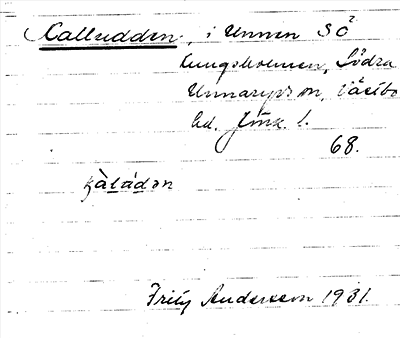 Kalludden, i Unnen SÖ
Kungsholmen, Södra
Unnaryds sn, Västbo
hd. Jönk. l.
68.
kàlúdən
Fritz Andersson 1931.